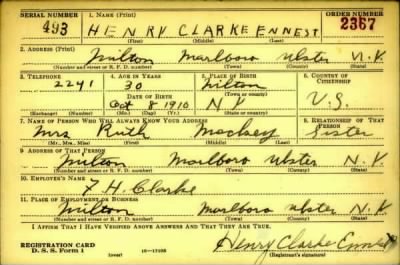 SERIAL NUMBER 1. NAME (Print) ORDER NUMBER
493 HENRY CLARKE ENNEST 2367
(First) (Middle) (Last)
2. ADDRESS (Print)
Milton Marlboro Ulster N.Y
(Number and street or R. F. D. number) (Town) (County) (State)
3. TELEPHONE 4. AGE IN YEARS 5. PLACE OF BIRTH 6. COUNTRY OF CITIZENSHIP
2241 30 Milton
DATE OF BIRTH (Town or county)
Oct 8 1910 N Y U.S.
(Exchange) (Number) (Mo.) (Day) (Yr.) (State or country)
7. NAME OF PERSON WHO WILL ALWAYS KNOW YOUR ADDRESS 8. RELATIONSHIP OF THAT PERSON
Mrs Ruth Mackey Sister
(Mr., Mrs., Miss) (First) (Middle) (Last)
9. ADDRESS OF THAT PERSON
Milton Marlboro Ulster N. Y
(Number and street or R. F. D. number) (Town) (County) (State)
10. EMPLOYER'S NAME
H. Clarke
11. PLACE OF EMPLOYMENT OR BUSINESS
Milton Marlboro Ulster N.Y
(Number and street or R. F. D. number) (Town) (County) (State)
I AFFIRM THAT I HAVE VERIFIED ABOVE ANSWERS AND THAT THEY ARE TRUE.
REGISTRATION CARD
D. S. S. Form 1 (over) Henry Clarke Ennest
(Registrant's signature)